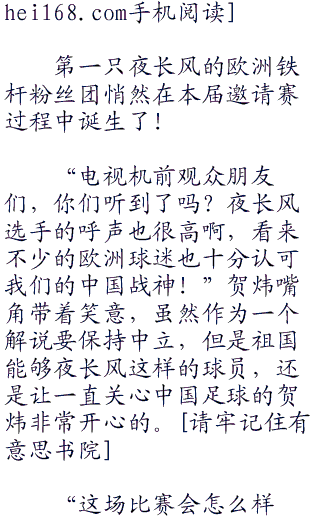 hei168.com手机阅读]
第一只夜长风的欧洲铁
杆粉丝团悄然在本届邀请赛
过程中诞生了!
“电视机前观众朋友
们,你们听到了吗?夜长风
选手的呼声也很高啊,看来
不少的欧洲球迷也十分认可
我们的中国战神!”贺炜嘴
角带着笑意,虽然作为一个
解说要保持中立,但是祖国
能够夜长风这样的球员,还
是让一直关心中国足球的贺
炜非常开心的。[请牢记住有
意思书院]
“这场比赛会怎么样